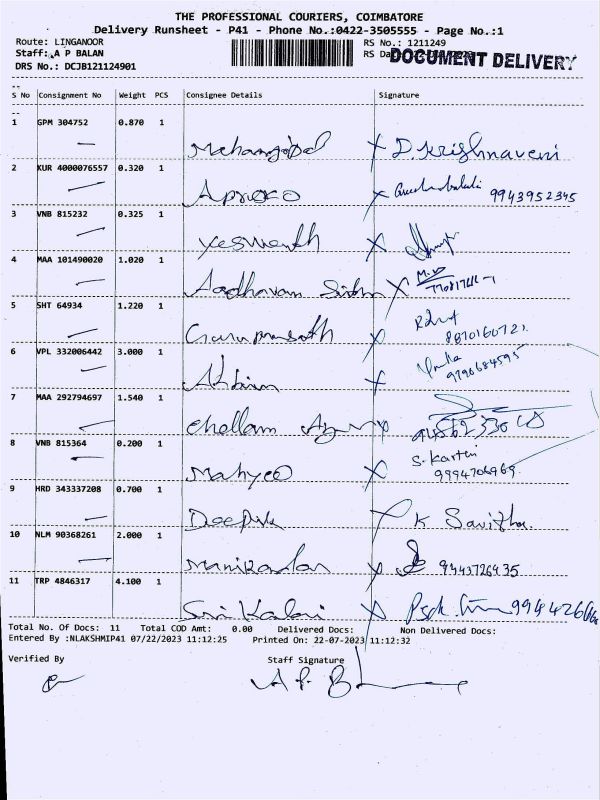 THE PROFESSIONAL COURIERS, COIMBATORE
Delivery Runsheet - P41 - Phone No.:0422-3505555 - Page No.:1
Route: LINGANOOR RS No.: 1211249
Staff: A P BALAN RS Da DOCUMENT DELIVERY
DRS No.: DCJB121124901
S No Consignment No Weight PCS Consignee Details Signature
1 GPM 304752 0.870 1
D. Krishnaveni
2 KUR 4000076557 0.320 1
9943952345
3 VNB 815232 0.325 1
Yeswanth
4 MAA 101490020 1.020 1
Aadhavan
5 SHT 64934 1.220 1
Guruprasath 8870160721
6 VPL 332006442 3.000 1
9790684595
7 MAA 292794697 1.540 1
Chellam
8 VNB 815364 0.200 1
S. Karthi
9994706969
9 HRD 343337208 0.700 1
Deepik K Savitha.
10 NLM 90368261 2.000 1
Manikandan 9443726435
11 TRP 4846317 4.100 1
Sri Kalai
Total No. Of Docs: 11 Total COD Amt: 0.00 Delivered Docs: Non Delivered Docs:
Entered By :NLAKSHMIP41 07/22/2023 11:12:25 Printed On: 22-07-2023 11:12:32
Verified By Staff Signature